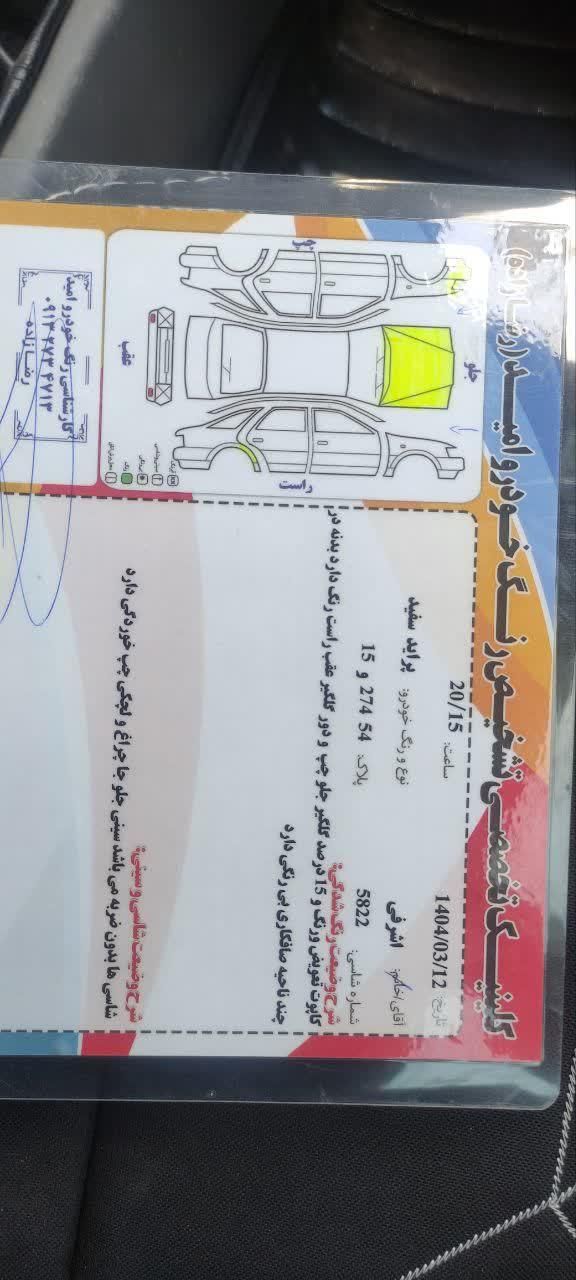 کلینیک تخصصی تشخیص رنگ خودرو امید (رضا زاده)
تاریخ: 1404/03/12
ساعت: 20/15
آقای/خانم: اشرفی
نوع و رنگ خودرو: پراید سفید
شماره شاسی: 5822
پلاک: 54 274 و 15
شرح وضعیت رنگ شدگی:
کاپوت تعویض ورنگ و 15 درصد گلگیر جلو چپ و دور گلگیر عقب راست رنگ دارد بدنه در
چند ناحیه صافکاری بی رنگی دارد
شرح وضعیت شاسی و سینی:
شاسی ها بدون ضربه می باشد سینی جلو جا چراغ و لچکی چپ خوردگی دارد
چپ
جلو
عقب
راست
کارشناسی رنگ خودرو امید
۰۹۱۳ ۲۷۳ ۴۷۱۳
رضا زاده